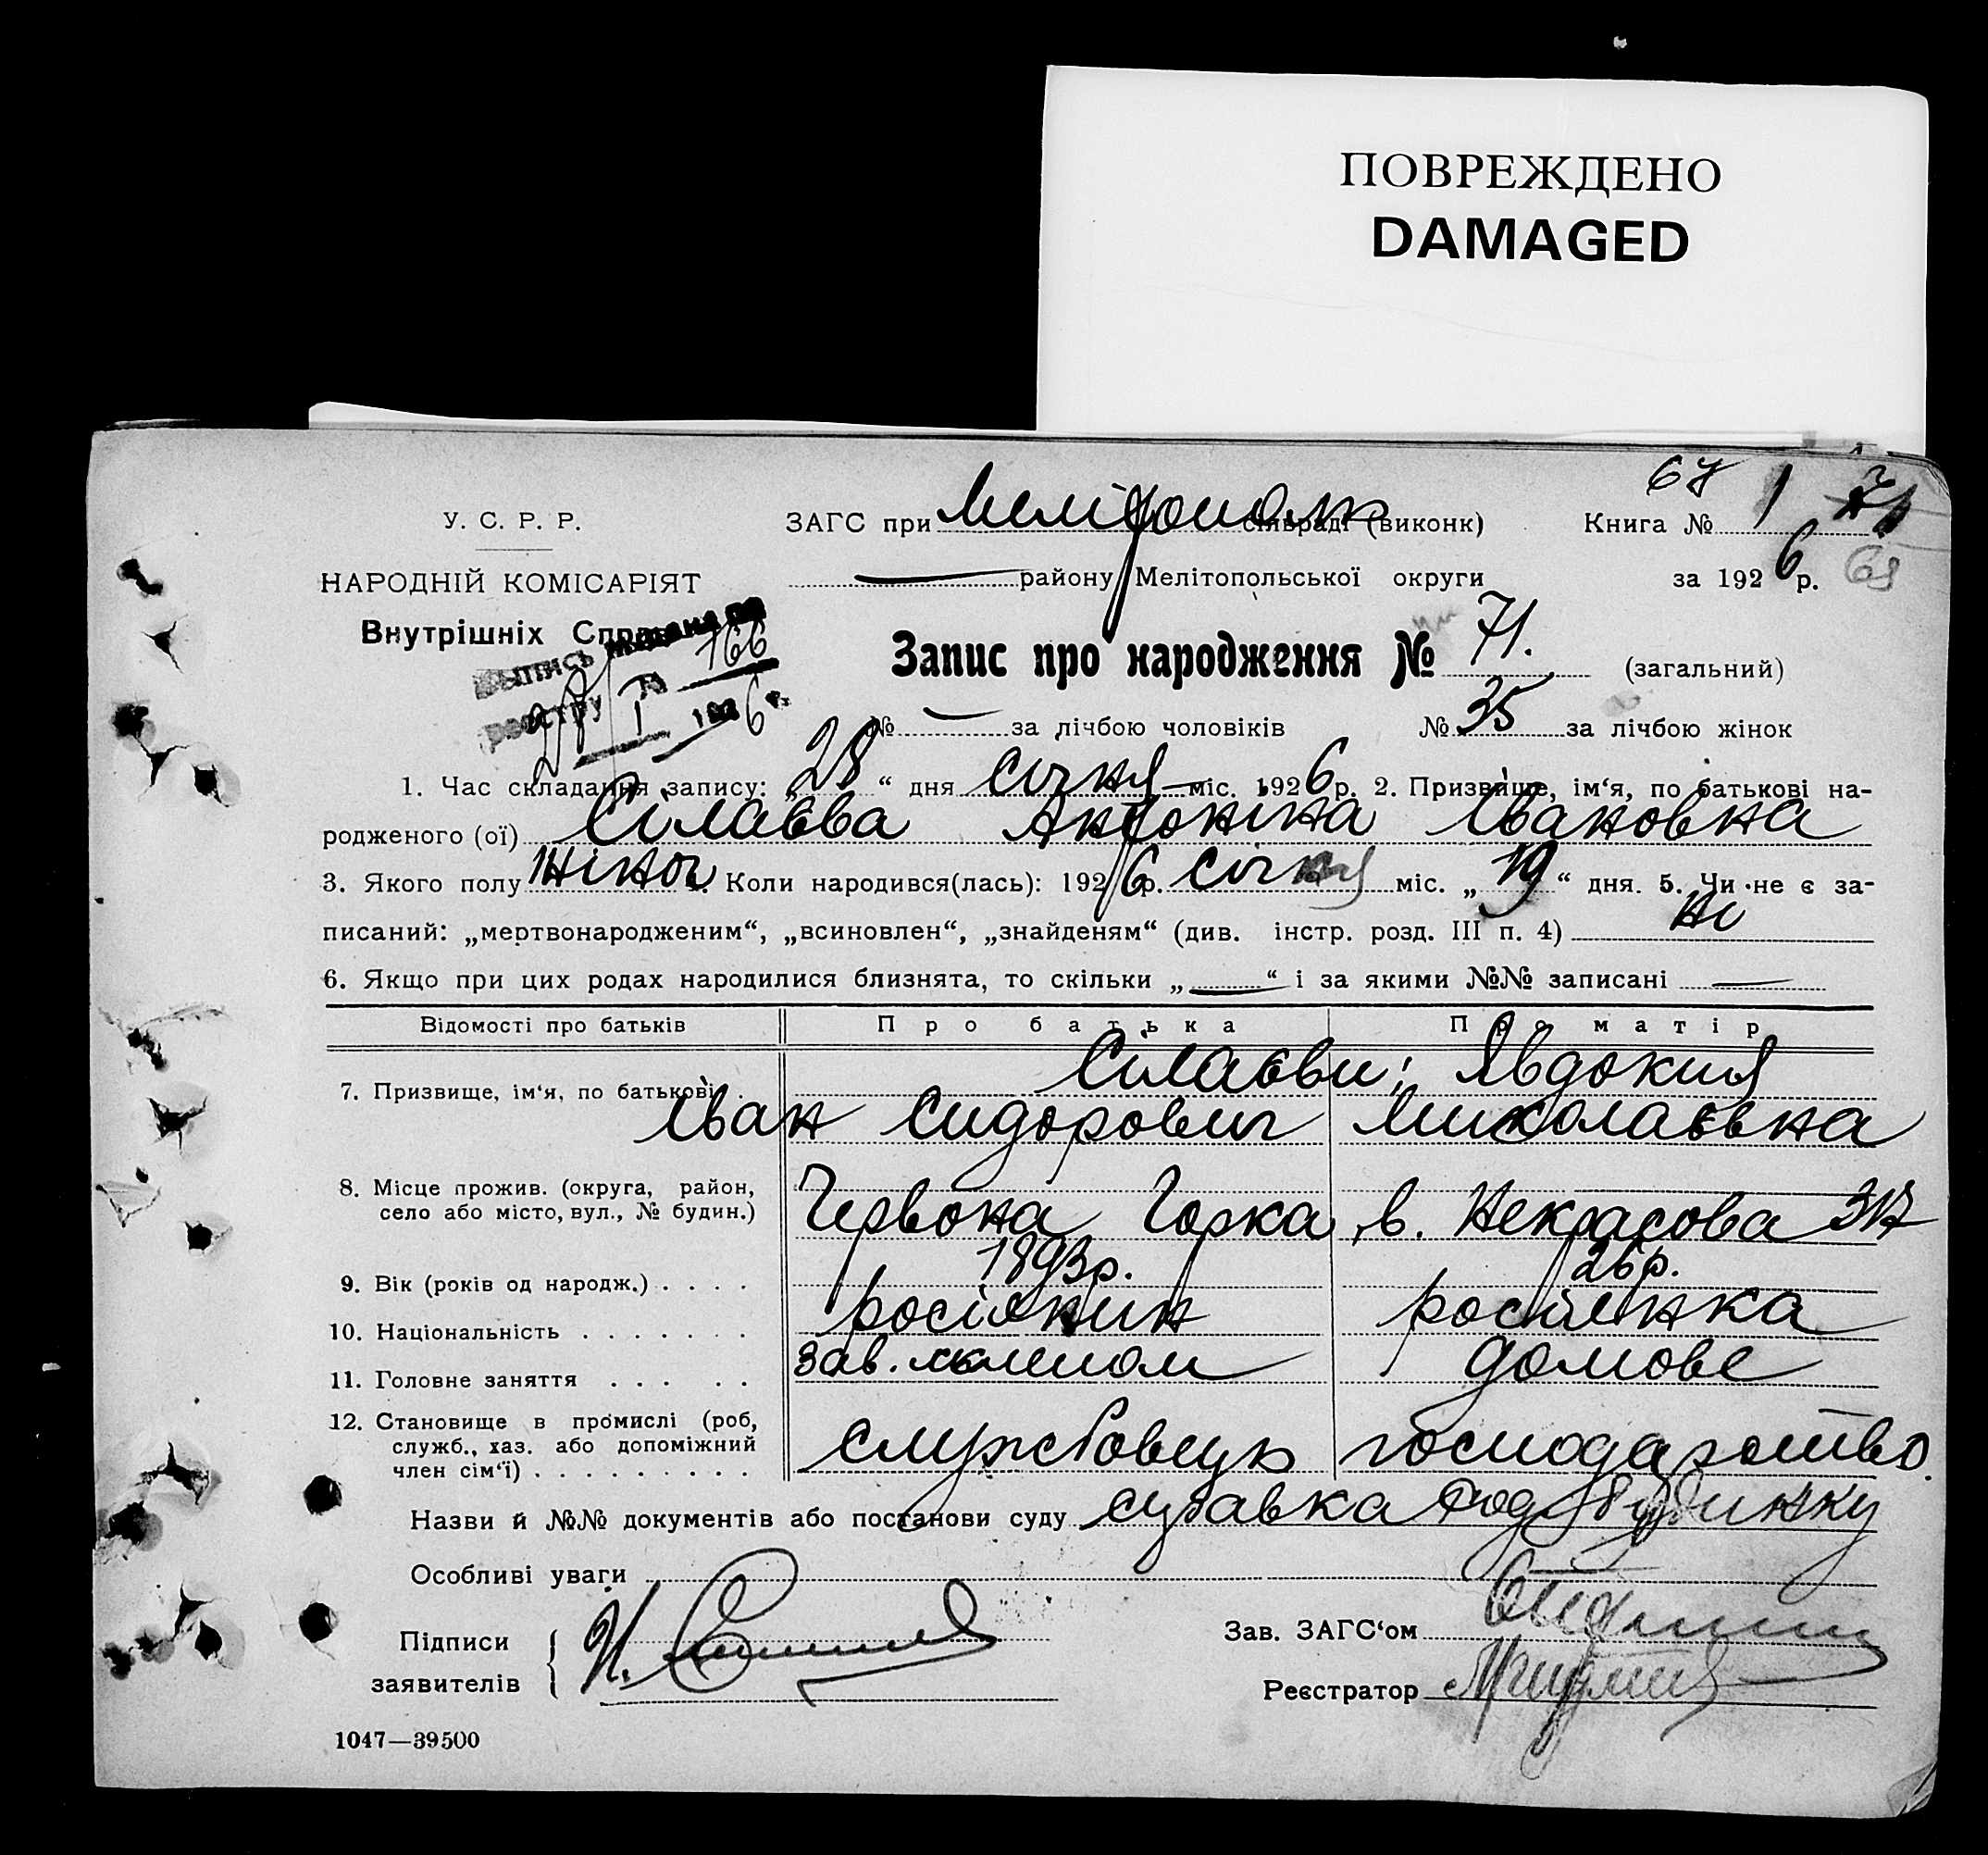 ПОВРЕЖДЕНО
DAMAGED
67 1 71
У. С. Р. Р. ЗАГС при Мелітополь сільраді (виконк) Книга №
НАРОДНІЙ КОМІСАРІЯТ — району Мелітопольської округи за 1926 р. 68
Внутрішніх Справ
Выпись выдана по
реестру № 166
28/I 1926 г.
Запис про народження № 71. (загальний)
№ — за лічбою чоловіків № 35 за лічбою жінок
1. Час складання запису: „28“ дня січня міс. 1926 р. 2. Призвище, ім‘я, по батькові на-
родженого (ої) Сілаєва Антоніна Івановна
3. Якого полу жіноч. Коли народився(лась): 1926 р. січня міс. „19“ дня. 5. Чи не є за-
писаний: „мертвонародженим“, „всиновлен“, „знайденям“ (див. інстр. розд. III п. 4) ні
6. Якщо при цих родах народилися близнята, то скільки „—“ і за якими №№ записані —
Відомості про батьків Про батька Про матір
7. Призвище, ім‘я, по батькові . Сілаєви: Явдокия
Іван Сидорович Миколаєвна
8. Місце прожив. (округа, район,
село або місто, вул., № будин.) Червона Горка, в. Некрасова 37
9. Вік (років од народж.) . . . . 1893р. 26р.
10. Національність . . . . . . . росіянин росіянка
11. Головне заняття . . . . . зав. млином домове
12. Становище в промислі (роб,
служб., хаз. або допоміжний
член сім‘ї) . . . . . . . . . службовець господарство.
Назви й №№ документів або постанови суду Род будинку
Особливі уваги
Підписи
заявителів
Зав. ЗАГС‘ом
Реєстратор
1047—39500